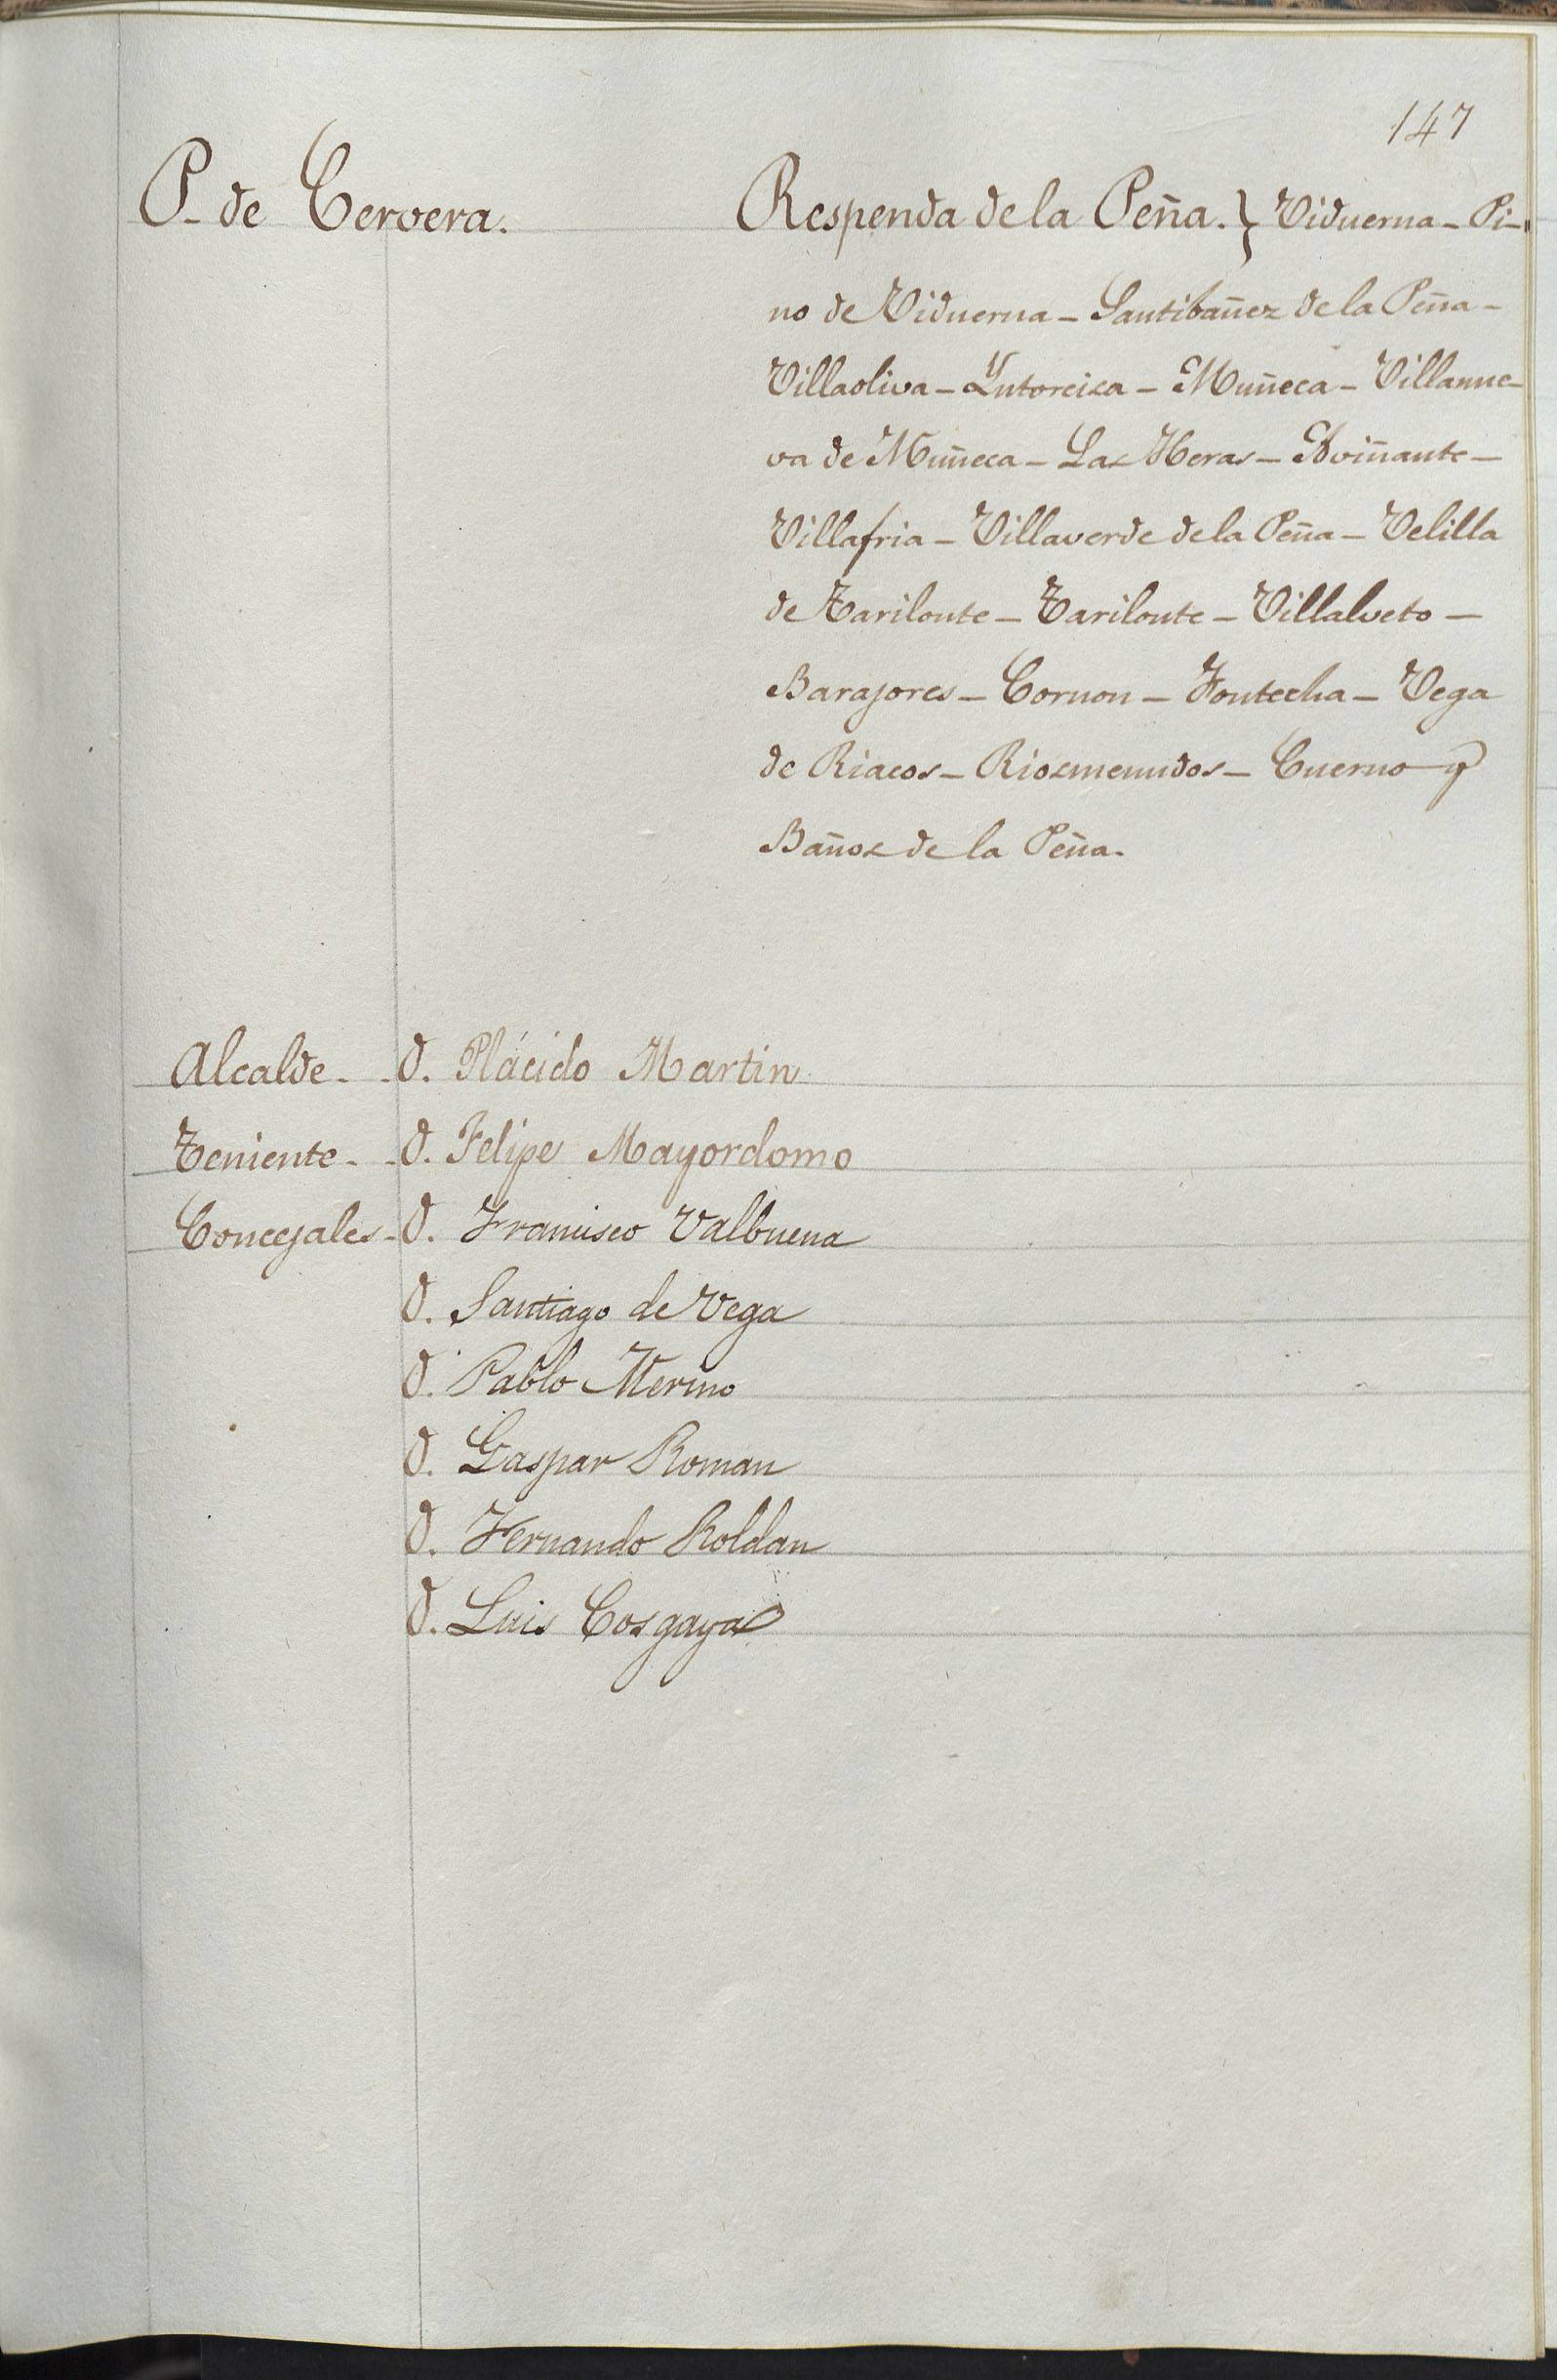 147
P. de Cervera. Respenda de la Peña. } Viduerna - Pi-
no de Viduerna - Santibañez de la Peña -
Villaoliva - Yntorcisa - Muñeca - Villanue-
va de Muñeca - Las Heras - Aviñante -
Villafria - Villaverde de la Peña - Velilla
de Tarilonte - Tarilonte - Villalveto -
Barajores - Cornon - Fontecha - Vega
de Riacos - Riosmenudos - Cuerno y
Baños de la Peña.
Alcalde - - D. Plácido Martin
Teniente - - D. Felipe Mayordomo
Concejales - D. Francisco Valbuena
D. Santiago de Vega
D. Pablo Merino
D. Gaspar Roman
D. Fernando Roldan
D. Luis Cosgaya